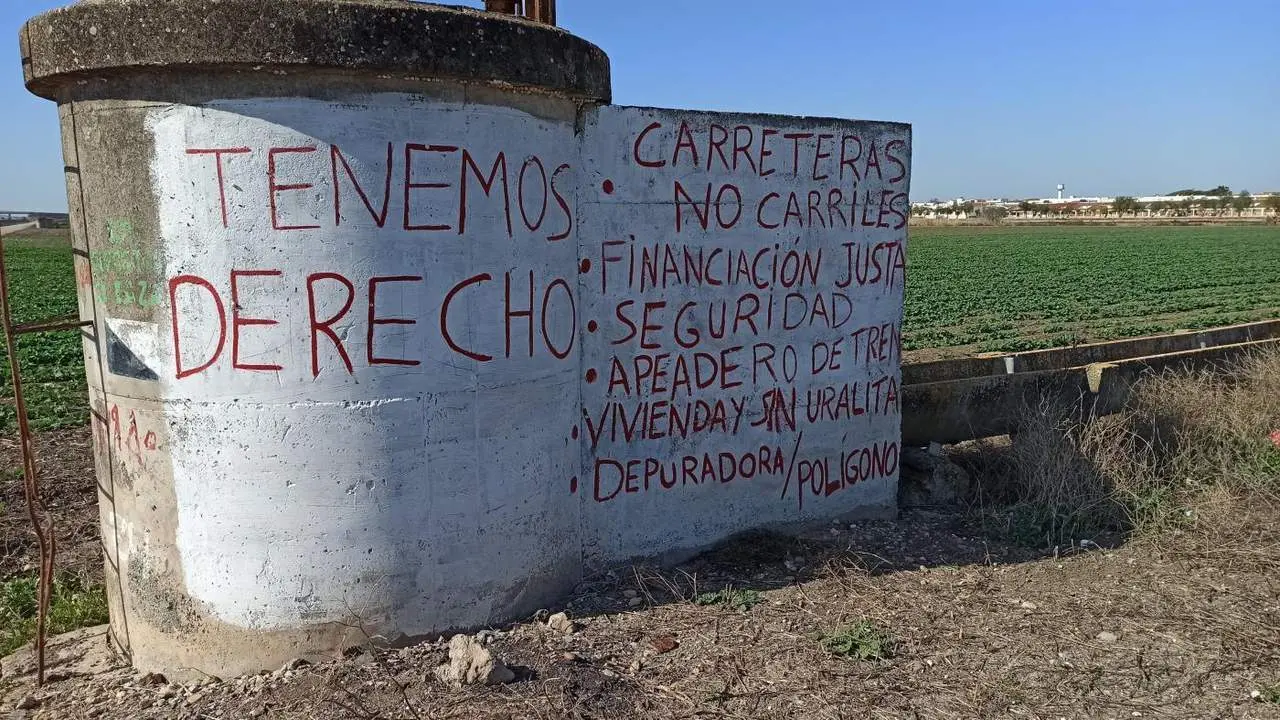 TENEMOS
DERECHO
CARRETERAS
• NO CARRILES
• FINANCIACIÓN JUSTA
• SEGURIDAD
• APEADERO DE TREN
• VIVIENDA Y SIN URALITA
• DEPURADORA/POLÍGONO